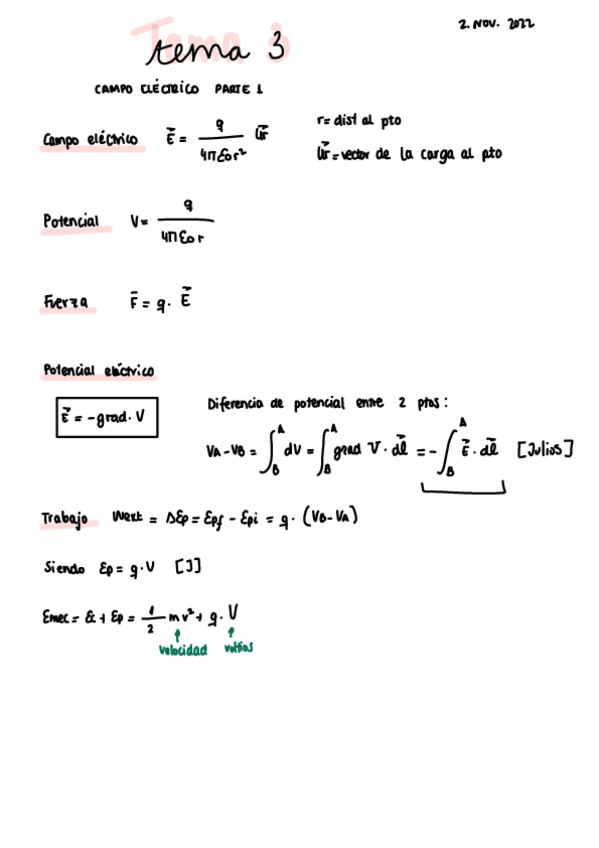 2. NOV. 2022
Tema 3
tema 3
CAMPO ELÉCTRICO PARTE 1
Campo eléctrico E⃗ = q / 4πε₀r² u⃗r
r = dist al pto
u⃗r = vector de la carga al pto
Potencial V = q / 4πε₀r
Fuerza F⃗ = q · E⃗
Potencial eléctrico
E⃗ = -grad · V
Diferencia de potencial entre 2 ptos:
VA - VB = ∫_B^A dV = ∫_B^A grad V · dl⃗ = - ∫_B^A E⃗ · dl⃗ [Julios]
Trabajo Wext = ΔEp = Epf - Epi = q · (VB - VA)
Siendo Ep = q · V [J]
Emec = Ec + Ep = 1/2 mv² + q · V
velocidad voltios